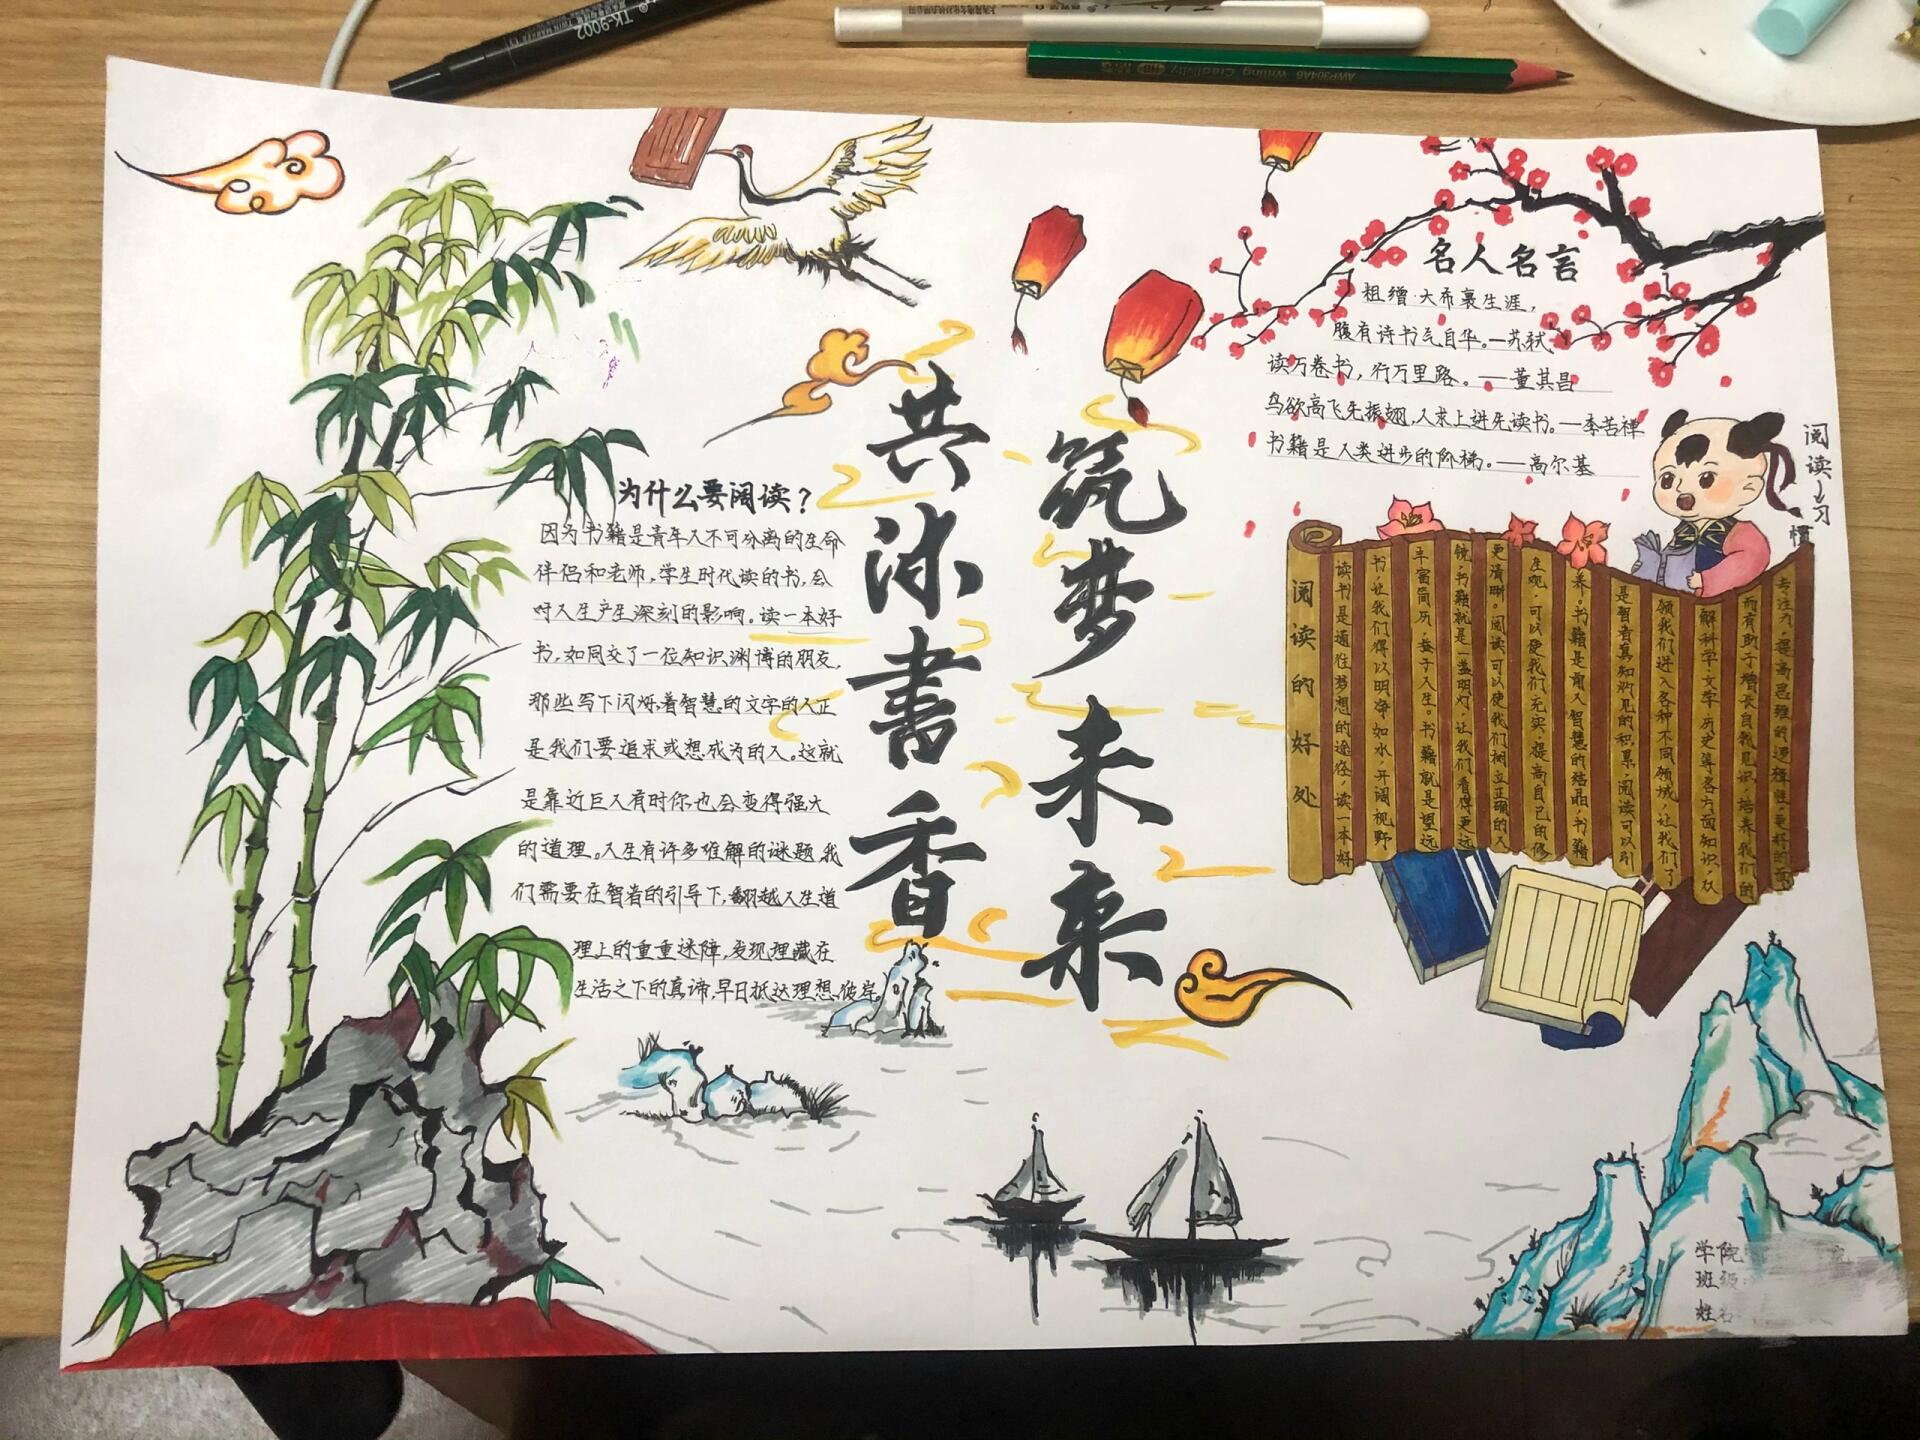 TK-9002
AWP304A6 Writing Creativity HB
共沐書香
筑梦未来
为什么要阅读？
因为书籍是青年人不可分离的生命
伴侣和老师，学生时代读的书，会
对人生产生深刻的影响。读一本好
书，如同交了一位知识渊博的朋友，
那些写下闪烁着智慧的文字的人正
是我们要追求或想成为的人。这就
是靠近巨人有时你也会变得强大
的道理。人生有许多难解的谜题，我
们需要在智者的引导下，翻越人生道
理上的重重迷障，发现埋藏在
生活之下的真谛，早日抵达理想彼岸。
名人名言
粗缯大布裹生涯，
腹有诗书气自华。—苏轼
读万卷书，行万里路。——董其昌
鸟欲高飞先振翅，人求上进先读书。—李苦禅
书籍是人类进步的阶梯。——高尔基
阅读小习惯
专注力，提高思维的逻辑性，更好的面
而有助于增长自我见识，培养我们的
解科学、文学、历史等各方面知识，从
领我们进入各种不同领域，让我们了
是智者真知灼见的积累，阅读可以引
养。书籍是前人智慧的结晶，书籍
生观，可以使我们充实，提高自己的修
更清晰。阅读可以使我们树立正确的人
镜，书籍就是一盏明灯，让我们看得更远
丰富简历，益于人生。书籍就是望远
书，让我们得以明净如水，开阔视野
读书是通往梦想的途径，读一本好
阅读的好处
学院
班级
姓名